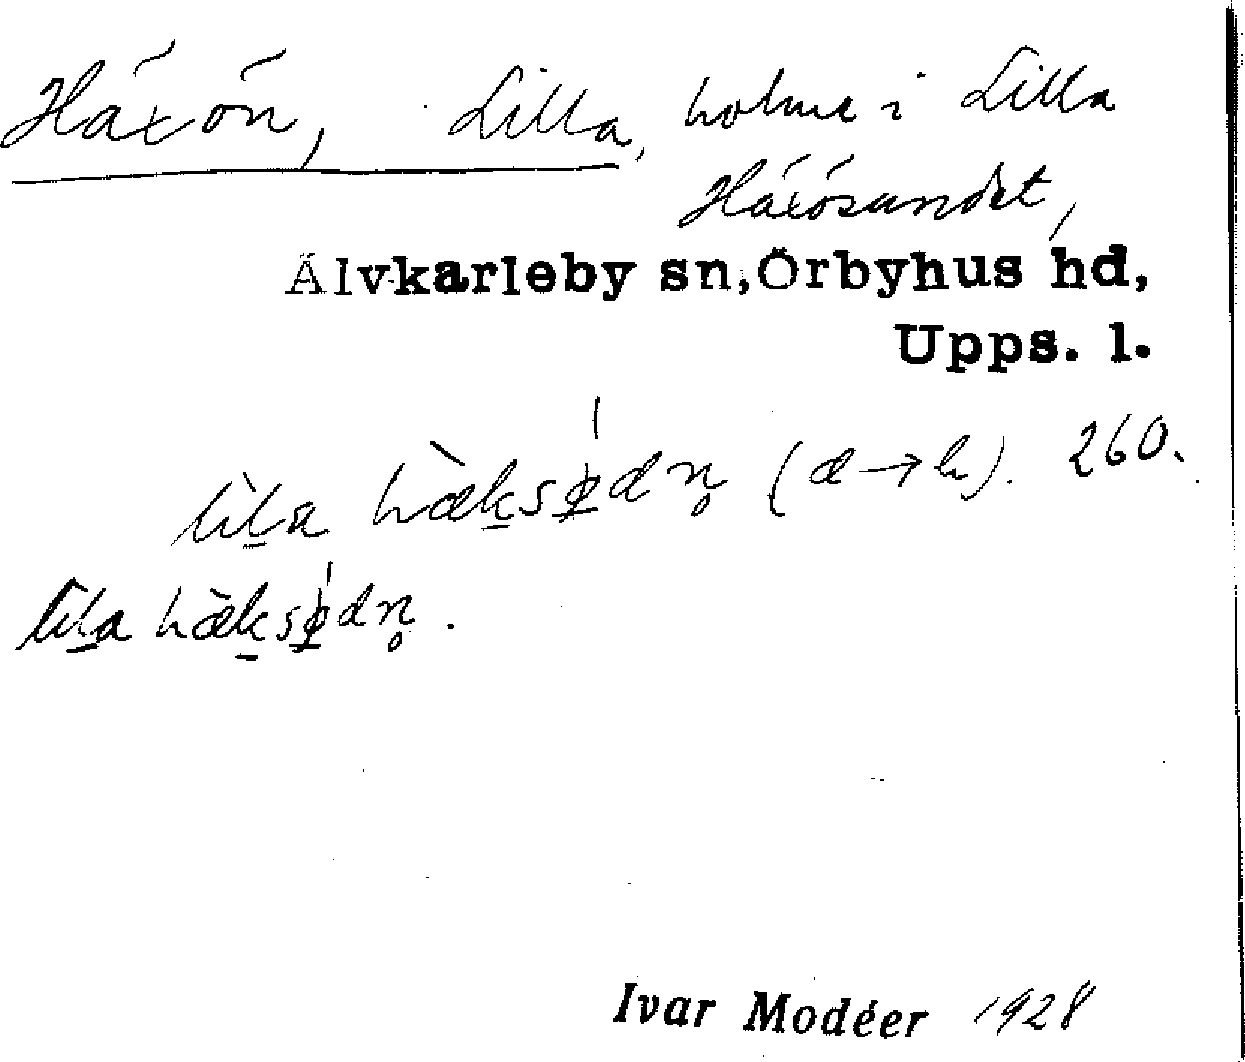 Häxön, Lilla, holme i Lilla
Häxösundet,
Älvkarleby sn, Örbyhus hd,
Upps. l.
lìla hæ̀ksø̀dn̥ (æ→h). 260.
lìla hæ̀ksø̀dn̥.
Ivar Modéer 1928